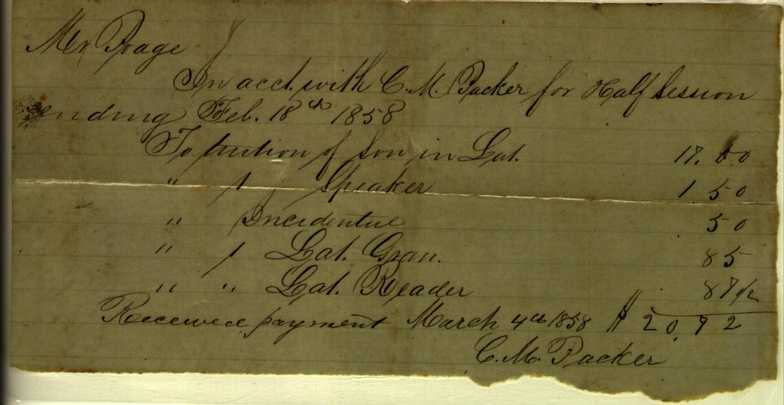 Mr Prage
In acct. with C. M. Packer for Half Session
ending Feb. 18th 1858
To tuition of son in Lat. 17.00
" 1 Speaker 1 50
" Incidental 50
" 1 Lat. Gram. 85
" " Lat. Reader 87 1/2
Received payment March 4th 1858 $ 20,72
C. M. Packer